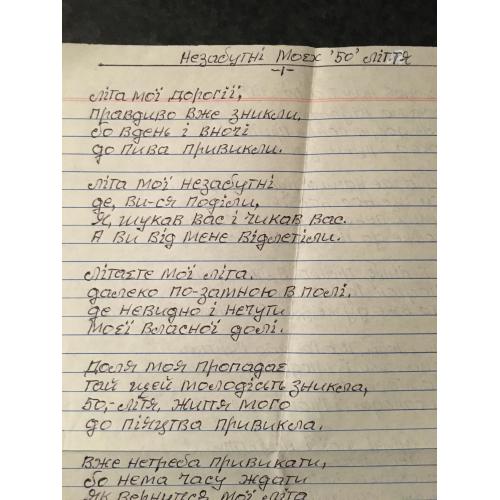 Незабутні Моєх '50' ліття
літа мої дорогії,
правдиво вже зникли,
бо вдень і вночі
до пива привикли.
літа мої незабутні
де, ви-ся поділи,
Я, шукав вас і чикав вас.
А ви від мене відлетіли.
літаєте мої літа.
далеко по-замною в полі.
де невидно і нечути
моєї власної долі.
Доля моя пропадає
тай щей молодість зникла,
50,-ліття, життя мого
до піяцтва привикла.
вже нетреба привикати,
бо нема часу ждати
Як вернутся мої літа